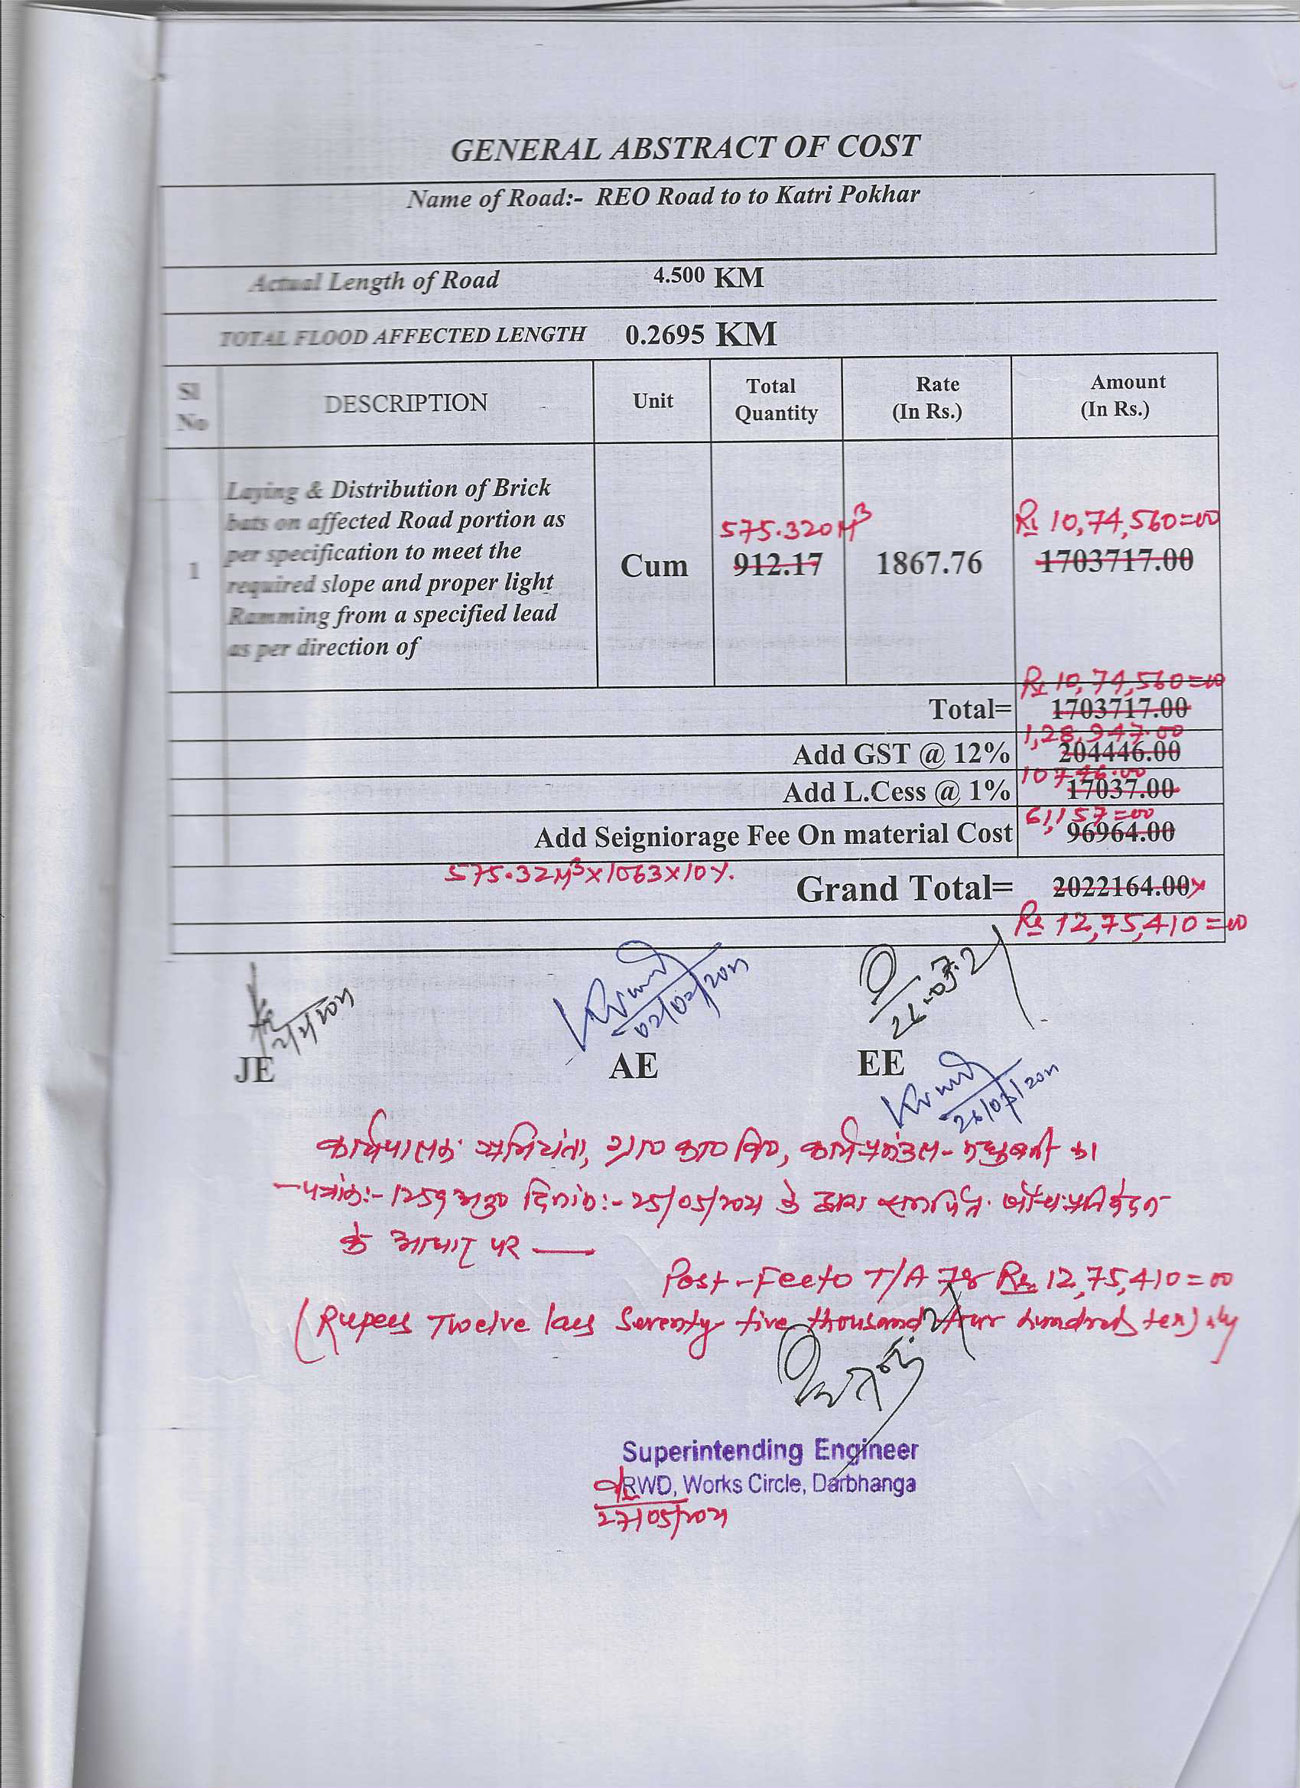 GENERAL ABSTRACT OF COST
Name of Road:- REO Road to to Katri Pokhar
Actual Length of Road 4.500 KM
TOTAL FLOOD AFFECTED LENGTH 0.2695 KM
Sl No DESCRIPTION Unit Total Quantity Rate (In Rs.) Amount (In Rs.)
Laying & Distribution of Brick
bats on affected Road portion as
per specification to meet the
required slope and proper light
Ramming from a specified lead
as per direction of
1 Cum 575.320M³ 912.17 1867.76 Rs 10,74,560=00 1703717.00
Rs 10,74,560=00
Total= 1703717.00
1,28,947.00
Add GST @ 12% 204446.00
10746.00
Add L.Cess @ 1% 17037.00
61,157=00
Add Seigniorage Fee On material Cost 96964.00
575.32M³×1063×10%.
Grand Total= 2022164.00
Rs 12,75,410=00
02/02/2021
26.05.21
JE AE EE
26/05/2021
कार्यपालक अभियंता, ग्रा० का० वि०, कार्य प्रमंडल- मधुबनी का
पत्रांक:- 1259 अनु० दिनांक:- 25/05/2021 के द्वारा समर्पित प्रतिवेदन
के आधार पर
Post-Feeto T/A for Rs. 12,75,410=00
(Rupees Twelve lacs Seventy five thousand four hundred ten) only
Superintending Engineer
RWD, Works Circle, Darbhanga
27/05/2021